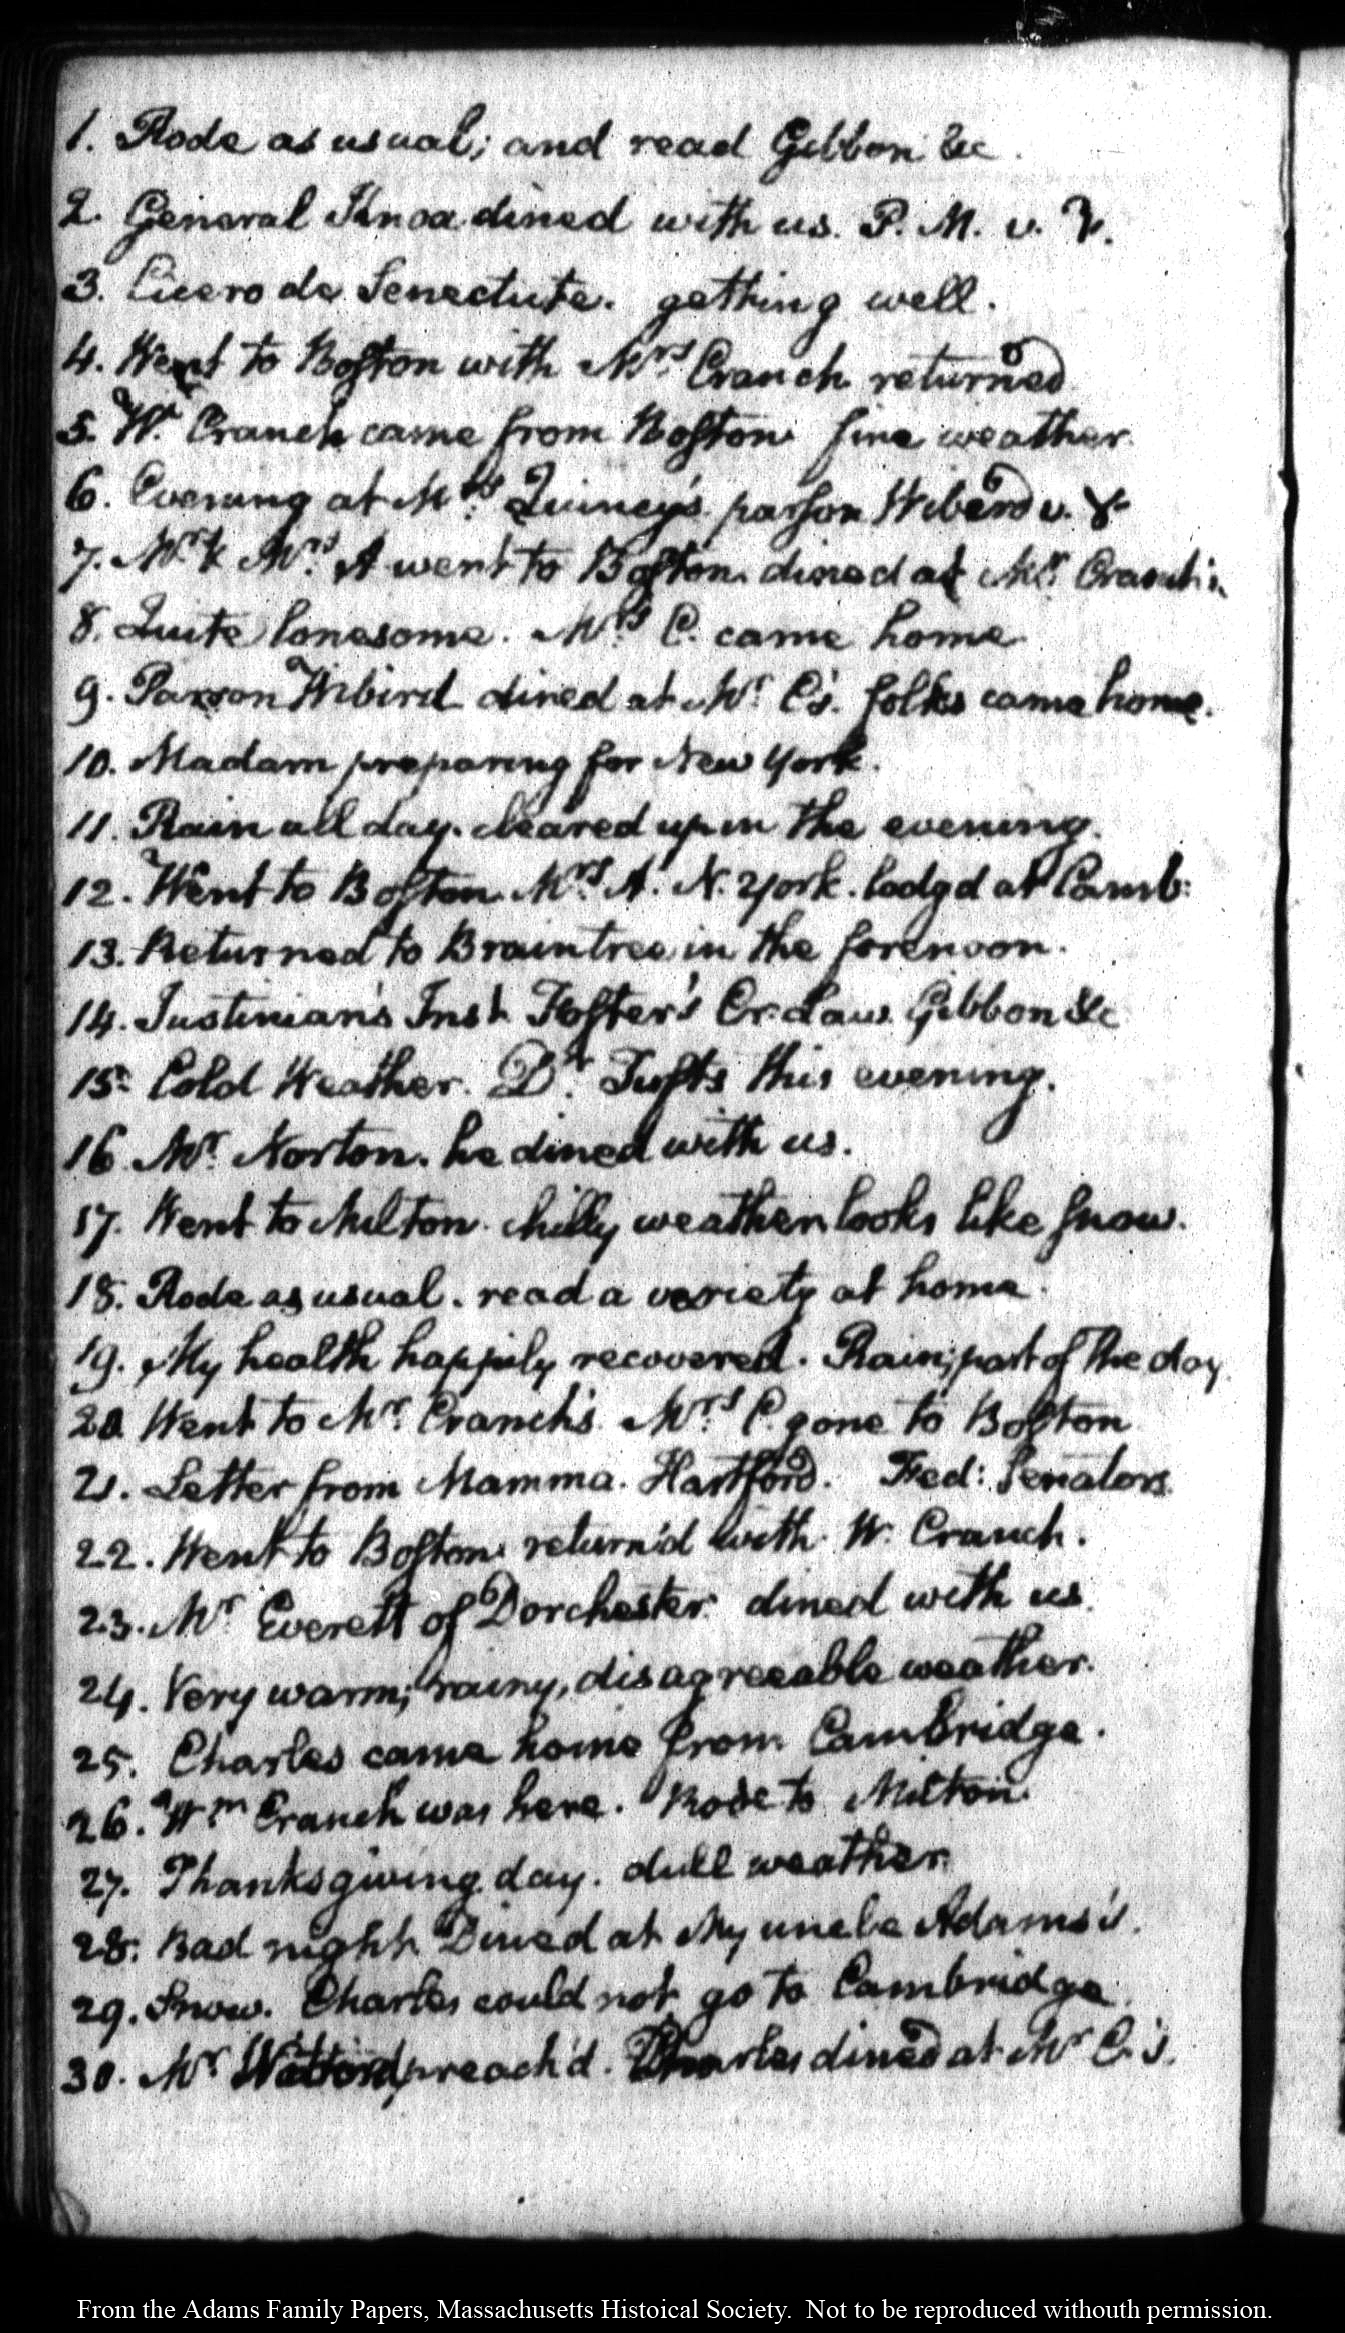 1. Rode as usual; and read Gibbon &c.
2. General Knox dined with us. P. M. v. 
3. Cicero de Senectute. getting well.
4. Went to Boston with Mrs. Cranch returned
5. W. Cranch came from Boston fine weather.
6. Evening at Mrs. Quincy's. parson Wiberd v.
7. Mr. & Mrs. A went to Boston. dined at Mr. Cranch's.
8. Quite lonesome. Mrs. C. came home
9. Parson Wibird dined at Mr. C's. folks came home.
10. Madam preparing for New York.
11. Rain all day. cleared up in the evening.
12. Went to Boston. Mrs. A. N. York. lodg'd at Camb:
13. Returned to Braintree in the forenoon.
14. Justinian's Inst. Foster's Cr. Law. Gibbon &c
15. Cold Weather. Dr. Tufts this evening.
16 Mr. Norton. he dined with us.
17. Went to Milton. chilly weather looks like snow.
18. Rode as usual. read a variety at home.
19. My health happily recovered. Rain, part of the day
20 Went to Mr. Cranch's. Mrs. C. gone to Boston
21. Letter from Mamma. Hartford. Fed: Senators.
22. Went to Boston return'd with W. Cranch.
23. Mr. Everett of Dorchester dined with us.
24. Very warm, rainy, disagreeable weather.
25. Charles came home from Cambridge.
26. Wm Cranch was here. Rode to Milton.
27. Thanksgiving day. dull weather.
28. Bad night. Dined at My uncle Adams's.
29. Snow. Charles could not go to Cambridge.
30. Mr. preach'd. Charles dined at Mr C's.
From the Adams Family Papers, Massachusetts Histoical Society. Not to be reproduced withouth permission.